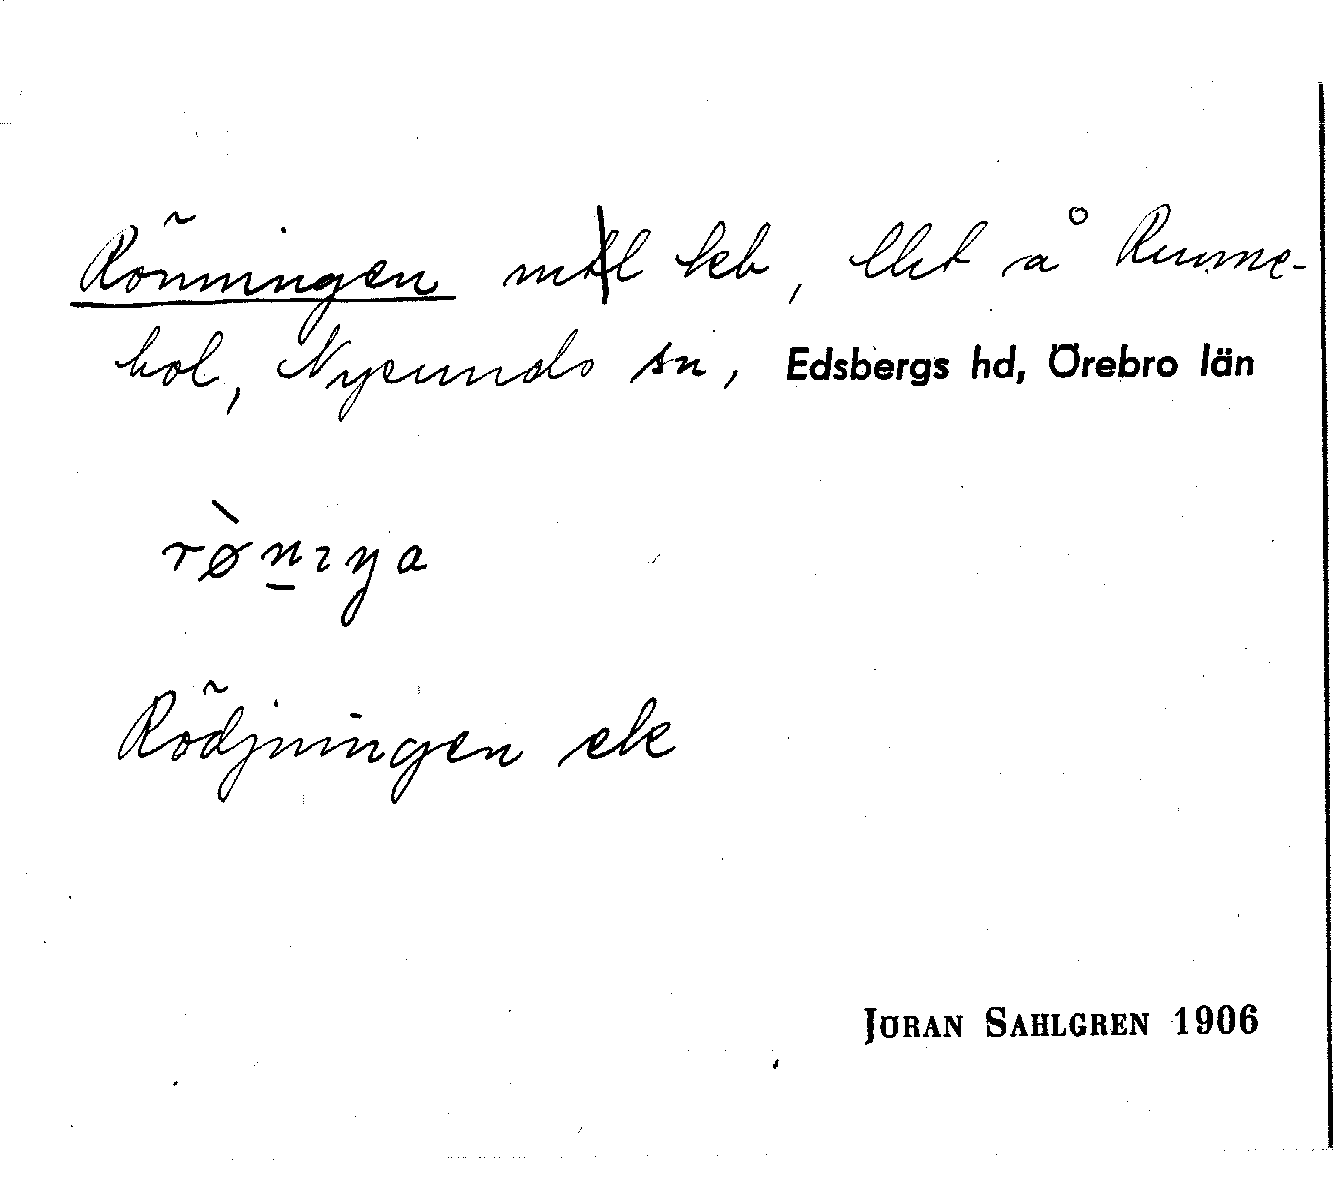 Rönningen mtl lkb, llht å Rumme-
bol, Nysunds sn, Edsbergs hd, Örebro län
rø̀n̲ıŋa
Rödjningen ek
JÖRAN SAHLGREN 1906